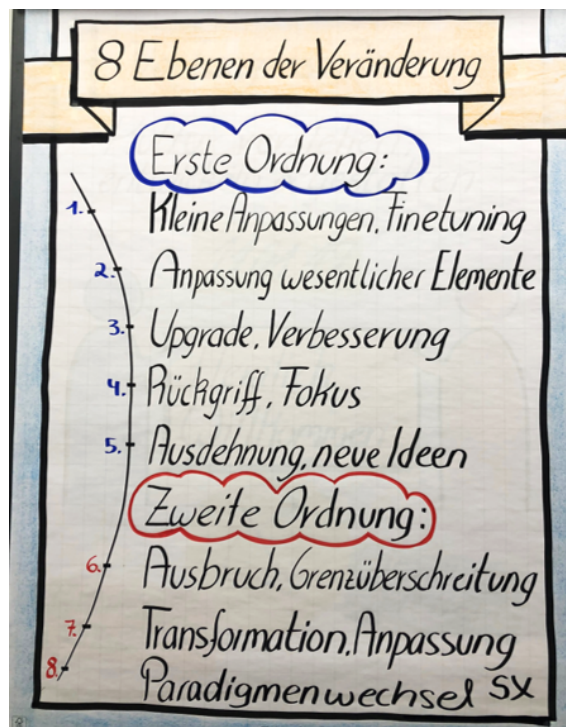 8 Ebenen der Veränderung
Erste Ordnung:
1. Kleine Anpassungen, Finetuning
2. Anpassung wesentlicher Elemente
3. Upgrade, Verbesserung
4. Rückgriff, Fokus
5. Ausdehnung, neue Ideen
Zweite Ordnung:
6. Ausbruch, Grenzüberschreitung
7. Transformation, Anpassung
8. Paradigmenwechsel SX